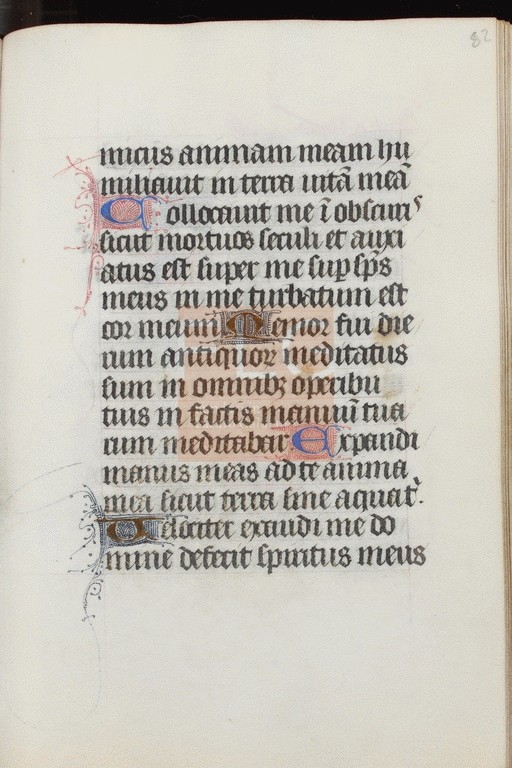 82
micus animam meam hu
miliauit in terra uitā meā
Collocauit me ī obscuris
sicut mortuos seculi et anxi
atus est super me sup sp̄s
meus in me turbatum est
cor meum Memor fui die
rum antiquoꝝ meditatus
sum in omnibꝫ operibu
tuis in factis manuū tua
rum meditabar Expandi
manus meas ad te anima
mea sicut terra sine aqua t̄.
Velociter exaudi me do
mine defecit spiritus meus